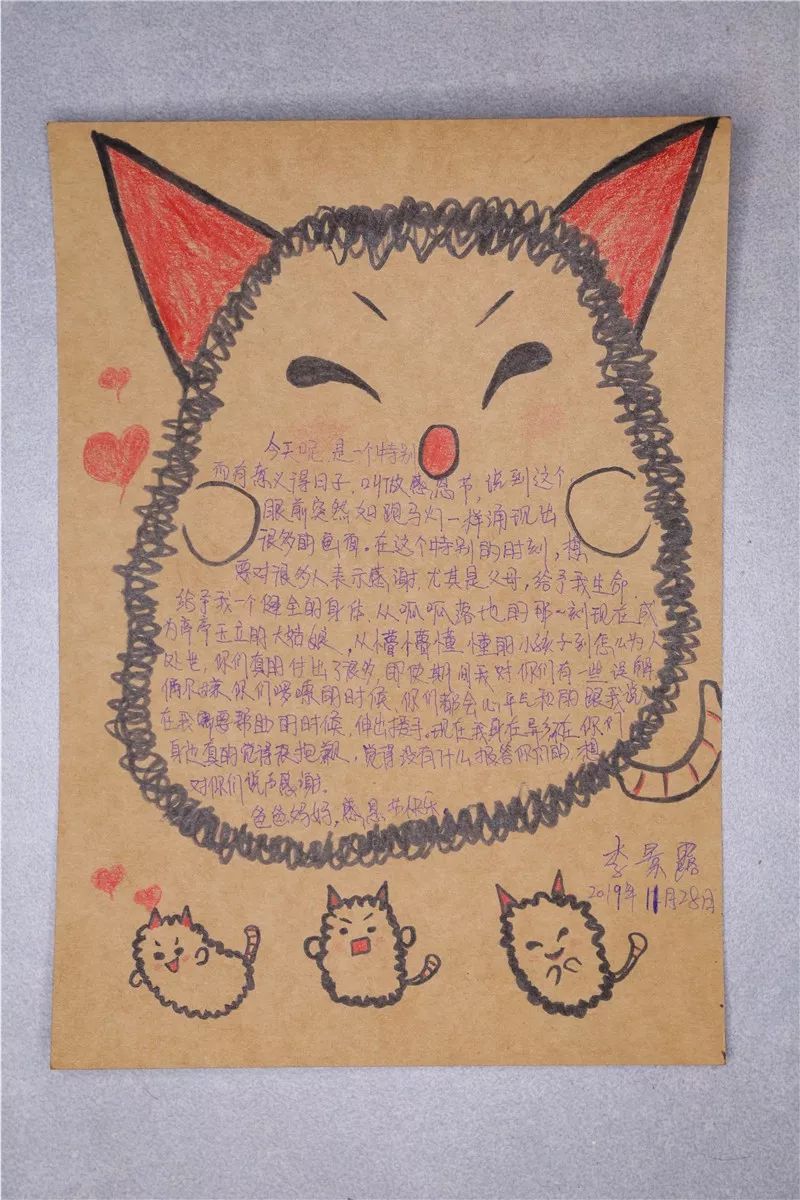 今天呢,是一个特别
而有意义得日子,叫做感恩节,说到这个
眼前突然如跑马灯一样涌现出
很多的画面。在这个特别的时刻,想
要对很多人表示感谢,尤其是父母,给予我生命,
给予我一个健全的身体,从呱呱落地的那一刻现在成
为亭亭玉立的大姑娘,从懵懵懂懂的小孩子到怎么为人
处世,你们真的付出了很多,即使期间我对你们有一些误解
你们啰嗦的时候,你们都会心平气和的跟我说
在我需要帮助的时候,伸出援手。现在我身在异乡在你们
身边真的觉得很抱歉,觉得没有什么报答你们的,想
对你们说声感谢。
爸爸妈妈,感恩节快乐
李景露
2019年11月28日